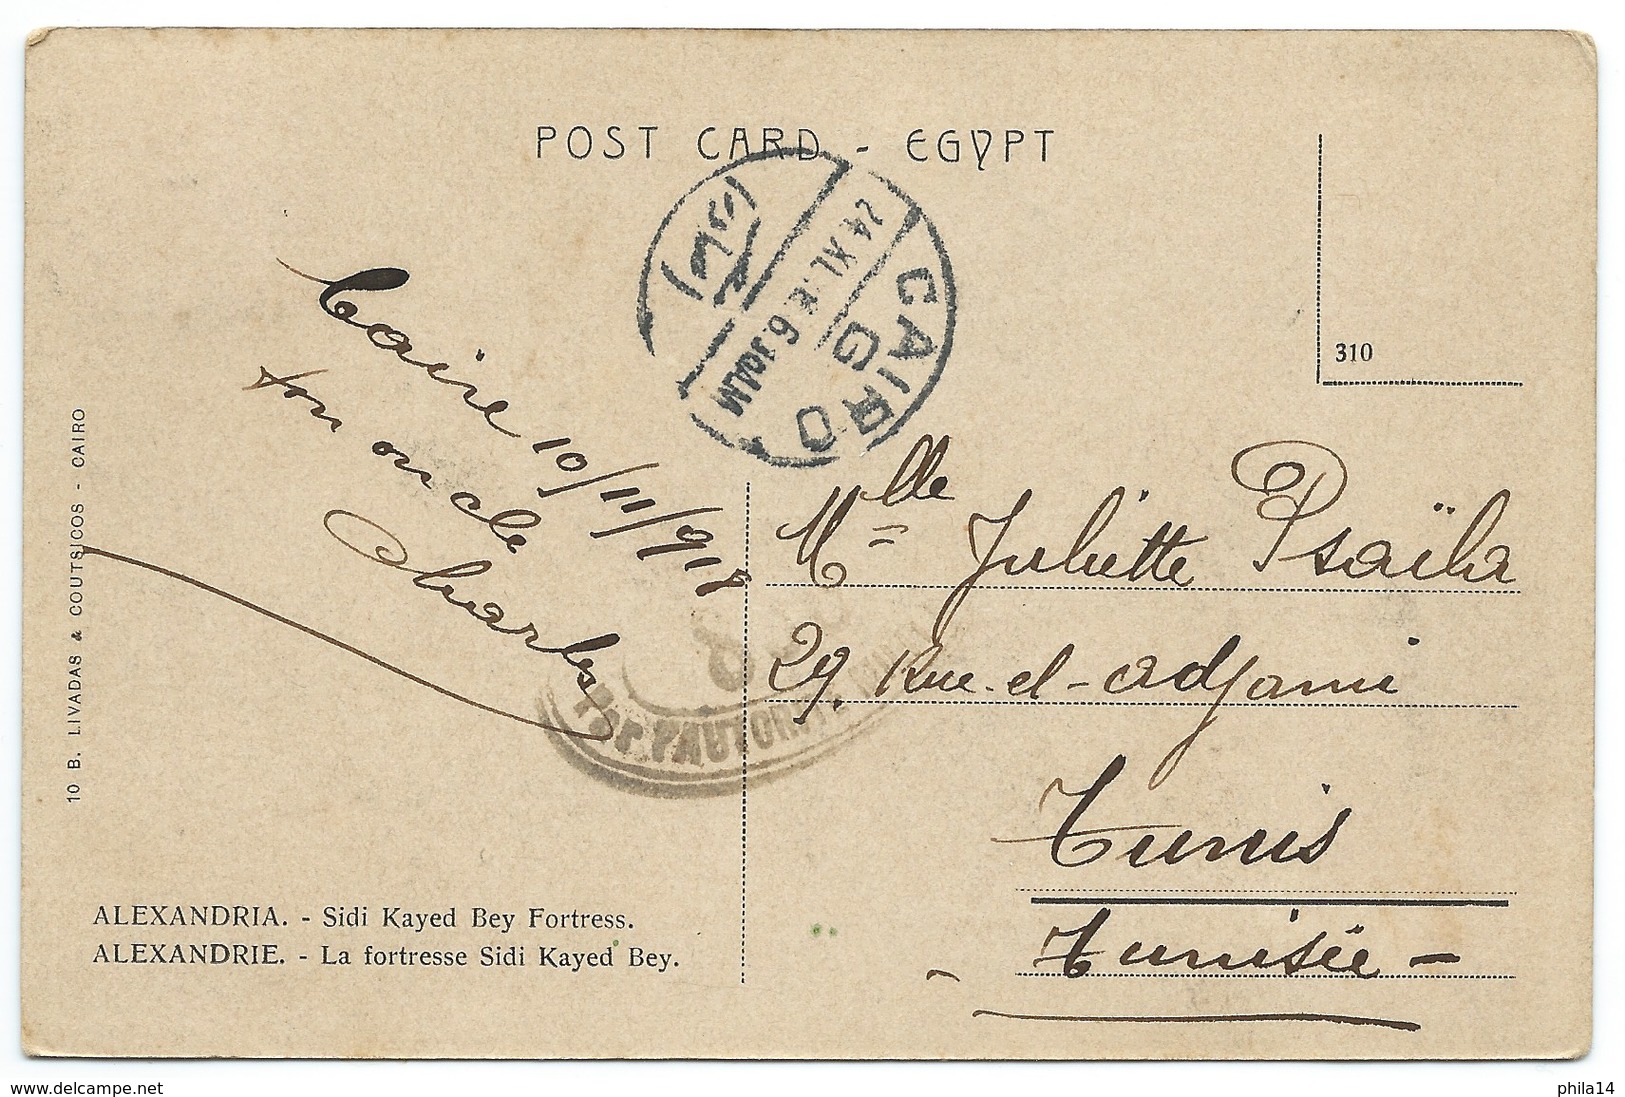 POST CARD - EGYPT
القاهرة
24.XI.
6 30 AM
CAIRO
310
Caire 10/11/918
ton oncle
Charles
Mlle Juliette Psaïla
29. Rue-el-adjami
Tunis
Tunisïe -
PAR L'AUTORITÉ
ALEXANDRIA. - Sidi Kayed Bey Fortress.
ALEXANDRIE. - La fortresse Sidi Kayed Bey.
10 B. LIVADAS & COUTSICOS - CAIRO
www.delcampe.net
phila14